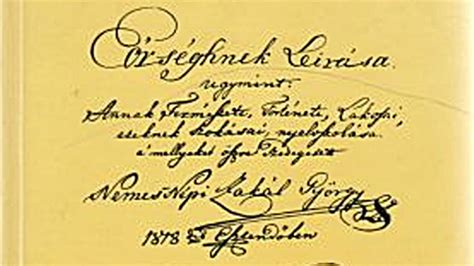 Eörséghnek Leirása.
ugymint:
Annak Természete, Története, Lakosai,
ezeknek szokásai, nyelvszokása.
a' mellyeket öszve szedegetett
NemesNépi Zakál György
1818 Esztendőben